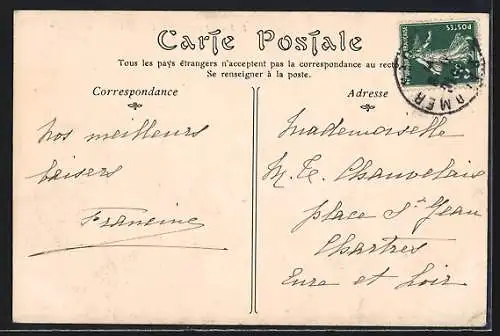 Carte Postale
Tous les pays étrangers n'acceptent pas la correspondance au recto
Se renseigner à la poste.
Correspondance
Adresse
Nos meilleurs
baisers
Francine
Mademoiselle
M. Th. Chauvelais
place St Jean
Chartres
Eure et Loir
POSTES
MER